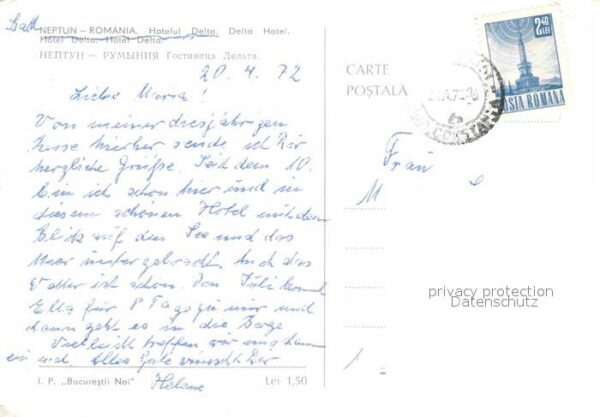 NEPTUN – ROMÂNIA. Hotelul Delta. Delta Hotel.
Hôtel Delta. Hotel Delta.
НЕПТУН – РУМЫНИЯ Гостиница Дельта.
20.4.72
Liebe Maria!
Von meiner diesjährigen
Reise hierher sende ich Dir
herzliche Grüße. Seit dem 10.
bin ich schon hier und in
diesem schönen Hotel mit dem
Blick auf den See und das
Meer untergebracht. Auch das
Wetter ist schön. Im Juli kommt
Ella für 8 Tage zu mir und
dann geht es in die Berge
Vielleicht treffen wir uns dann
Alles Gute wünscht Dir
Helene
I. P. „Bucureștii Noi"
Lei 1,50
CARTE
POȘTALĂ
2,40
LEI
POSTA ROMANA
CONSTANTA
Frau
M
privacy protection
Datenschutz